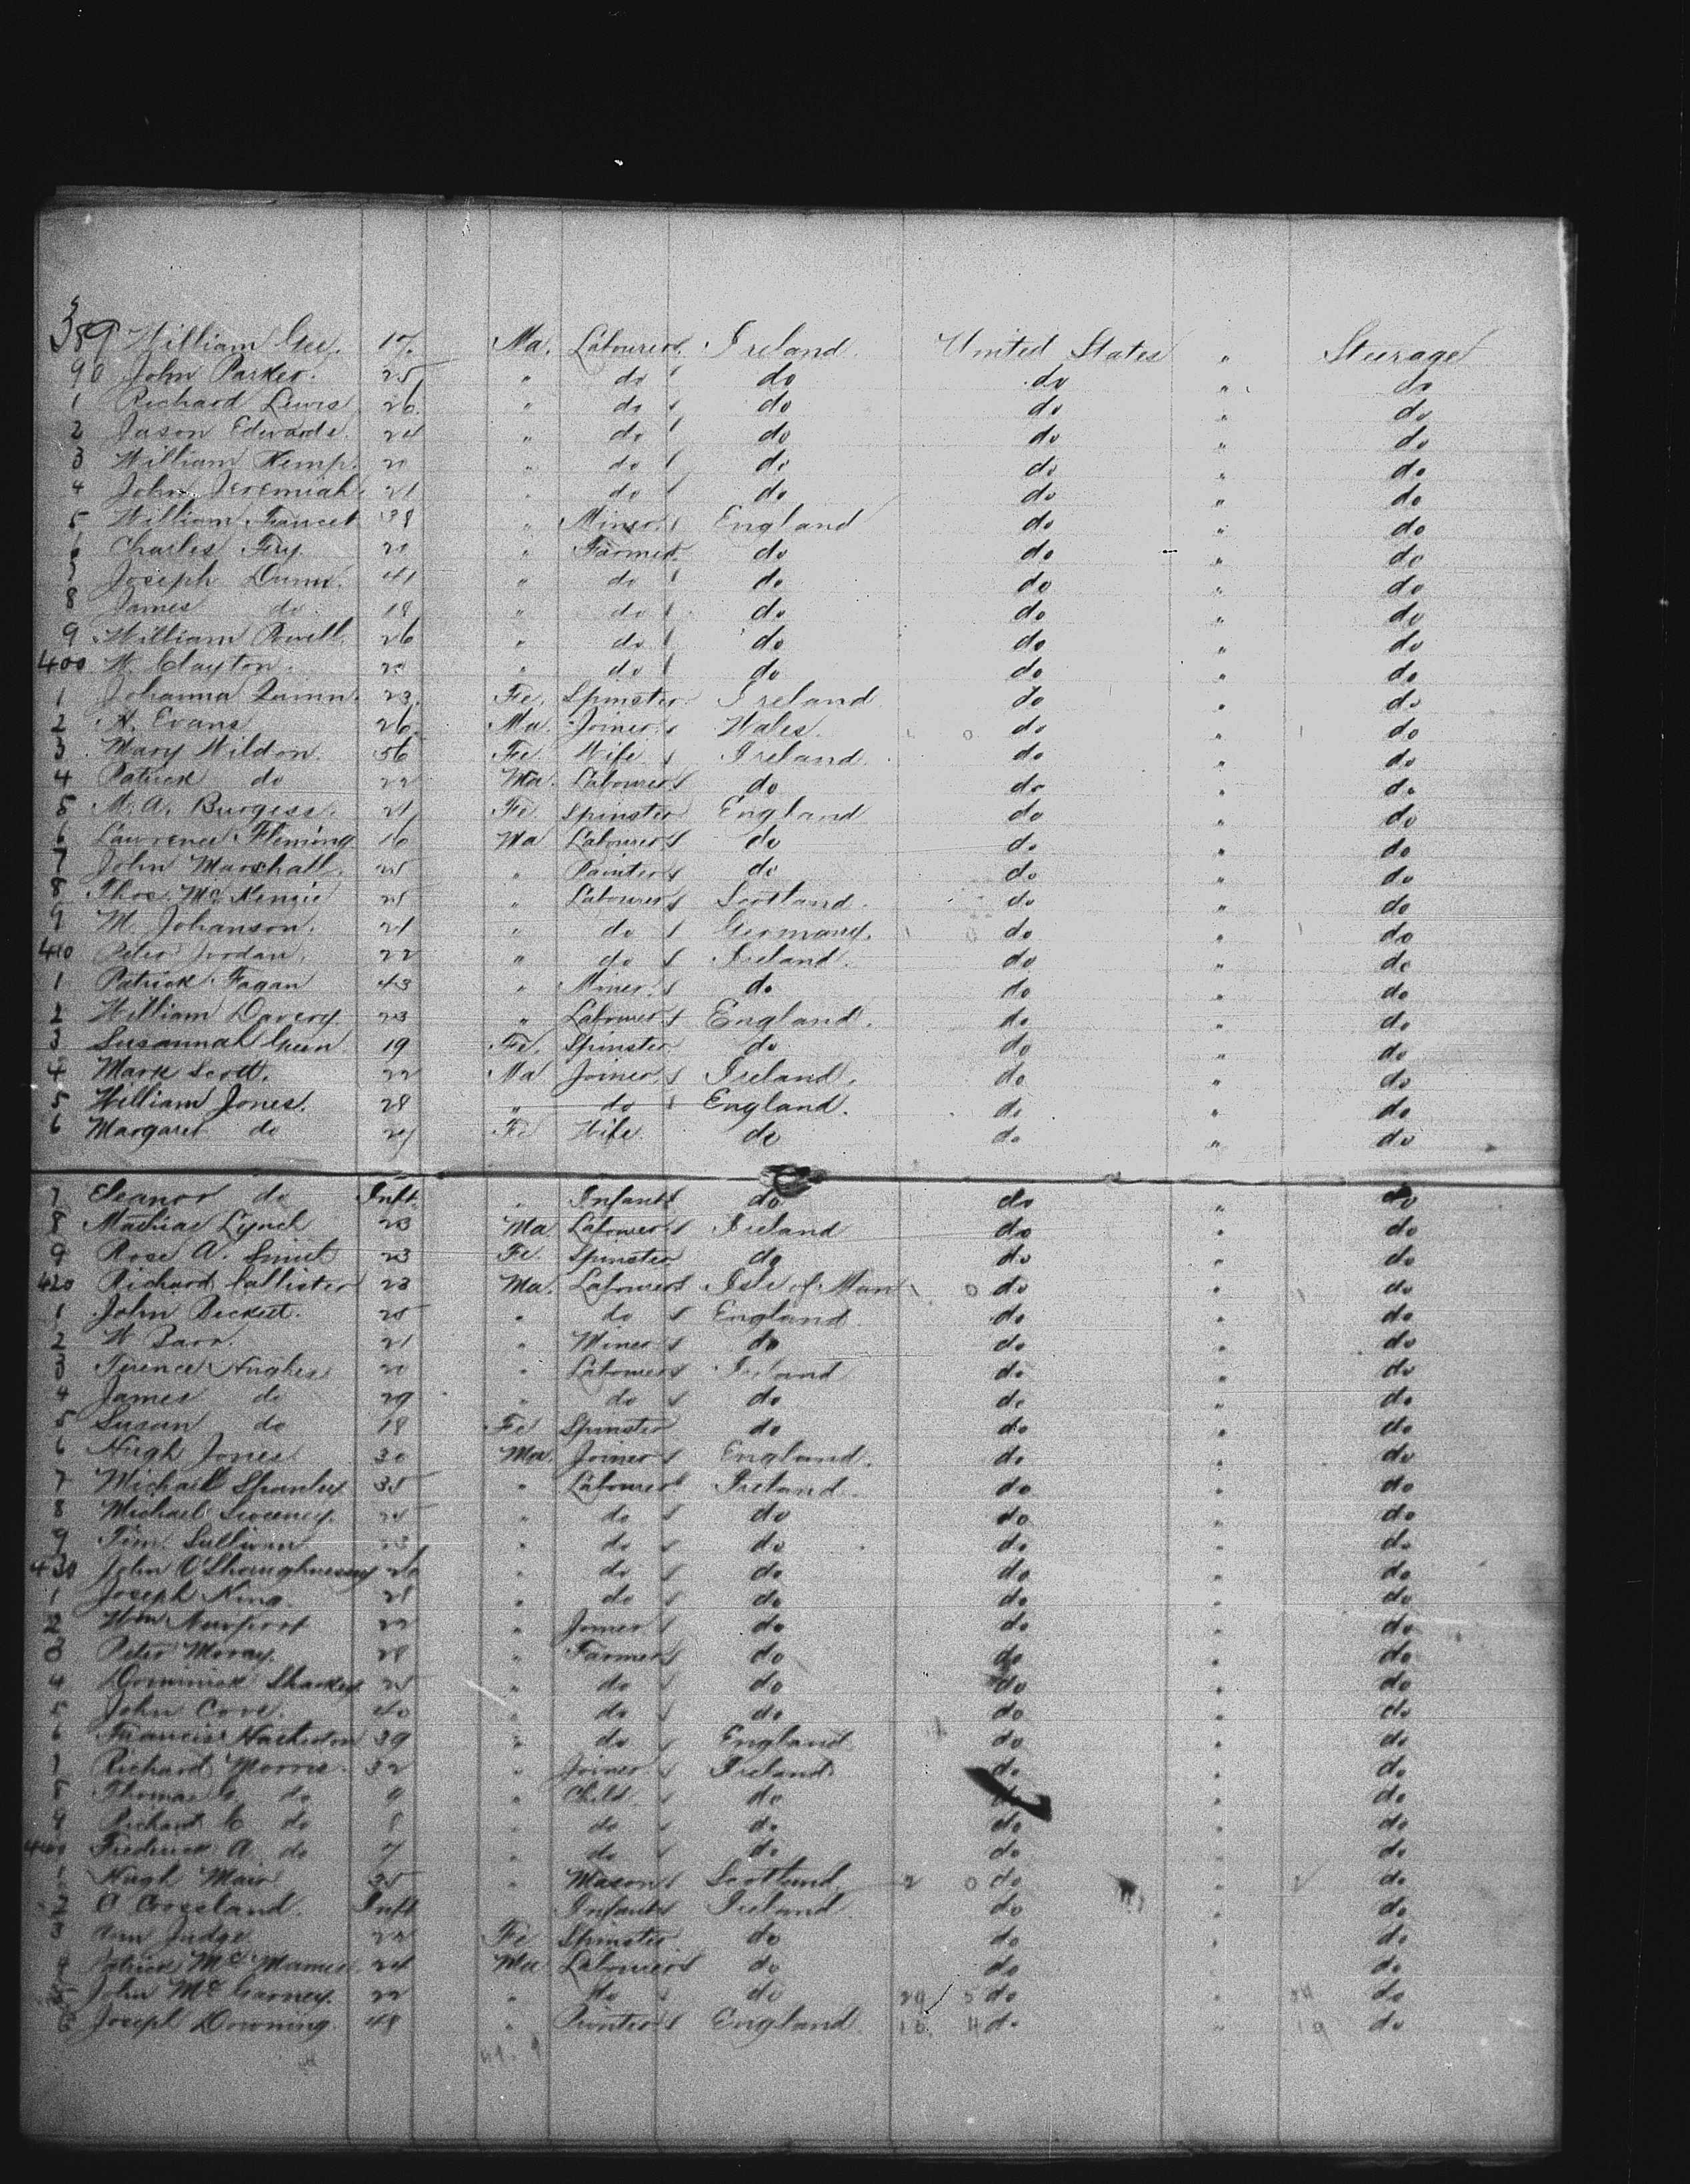 389 William Guy. 17. Ma. Labourer. Ireland. United States " Steerage
90 John Parker. 25 " do do do " do
1 Richard Lewis 26. " do do do " do
2 Jason Edwards. 24 " do do do " do
3 William Kemp. 20 " do do do " do
4 John Jeremiah. 21 " do do do " do
5 William Faucet 38 " Miner England do " do
6 Charles Fry 20 " Farmer do do " do
7 Joseph Dunn. 41 " do do do " do
8 James do 18 " do do do " do
9 William Powell. 26 " do do do " do
400 W. Clayton. 20 " do do do " do
1 Johanna Quinn. 23. Fe. Spinster Ireland do " do
2 H. Evans 26. Ma. Joiner Wales. 0 do " do
3 Mary Wildon. 56 Fe Wife Ireland. do " do
4 Patrick do 22 Ma. Labourer do do " do
5 M. A. Burgess. 21 Fe. Spinster England do " do
6 Lawrence Fleming 16 Ma Labourer do do " do
7 John Marshall. 25 " Painter do do " do
8 Thos. McKenzie 25 " Labourer Scotland. do " do
9 M. Johanson. 21 " do Germany. 0 do " do
410 Peter Jordan. 22 " do Ireland. do " do
1 Patrick Fagan 43 " Miner. do do " do
2 William Davery. 23 " Labourer England. do " do
3 Susannah Green 19 Fe. Spinster. do do " do
4 Mark Scott. 22 Ma Joiner. Ireland. do " do
5 William Jones. 28 " do England. do " do
6 Margaret do 27 Fe Wife. do do " do
7 Eleanor do Inft. " Infant do do " do
8 Mathias Lynch 23 Ma Labourer Ireland do " do
9 Rose A. 23 Fe. Spinster do do " do
420 Richard Callister 23 Ma. Labourer Isle of Man 0 do " do
1 John Beckett. 25 " do England. do " do
2 W. Barr. 21 " Miner do do " do
3 Terence Hughes 20 " Labourer Ireland do " do
4 James do 29 " do do do " do
5 Susan do 18 Fe Spinster do do " do
6 Hugh Jones 30 Ma. Joiner England. do " do
7 Michael Spanley 35 " Labourer Ireland. do " do
8 Michael Sweeney. 25 " do do do " do
9 Tim. Sullivan 23 " do do do " do
430 John O'Shaughnessy 26 " do do do " do
1 Joseph King. 28 " do do do " do
2 Wm Newport 22 " Joiner do do " do
3 Peter Moray. 28 " Farmer do do " do
4 Dominick Sharkey 25 " do do do " do
5 John Cove. 40 " do do do " do
6 Francis 39 " do England do " do
7 Richard Morris. 32 " Joiner Ireland. do " do
8 Thomas G. do 9 " Child do do " do
9 Richard C do 8 " do do do " do
440 Frederick A. do 7 " do do do " do
1 Hugh Mair 35 " Mason Scotland 2 0 do " 2 do
2 A Crossland. Inft Infant Ireland do " do
3 Ann Judge 22 Fe Spinster do do " do
4 Patrick McManus 24 Ma Labourer do do " do
5 John McGarney. 22 " do do 29 5 do " 34 do
6 Joseph Downing. 48 " England 4 do " 19 do